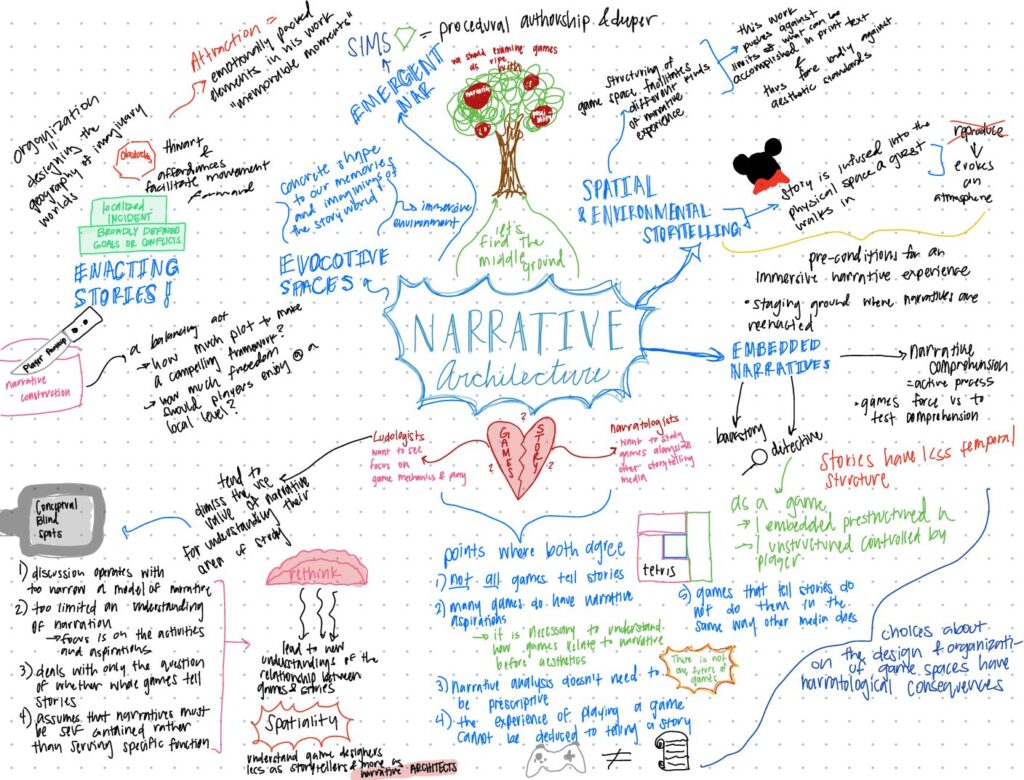 NARRATIVE
Architecture
let's
find the
middle
ground
we should examine games
as ripe
with
narrative
EMERGENT
NAR
SIMS
= procedural authorship & deeper
EVOCOTIVE
SPACES
concrete shape
to our memories
and imaginings of
the story world
immersive
environment
ENACTING
STORIES!
BROADLY DEFINED
GOALS OR CONFLICTS
localized
INCIDENT
organization
=
designing the
geography of imaginary
worlds
obstacles
thwart
&
affordances
facilitate movement
forward
Attraction =
emotionally packed
elements in his work
"memorable moments"
narrative
construction
a balancing act
→ how much plot to make
a compelling framework?
→ how much freedom
should players enjoy @ a
local level?
SPATIAL
& ENVIRONMENTAL
STORYTELLING
structuring of
game space facilitates
different kinds
of narrative
experience
this work
pushes against
limits of what can be
accomplished in print text
&
thus fare badly against
aesthetic standards
story is infused into the
physical space a guest
walks in
reproduce
evokes
an
atmosphere
pre-conditions for an
immersive narrative experience
• staging ground where narratives are
reenacted
EMBEDDED
NARRATIVES
Narrative
comprehension
= active process
• games force us to
test comprehension
backstory
detective
as a game
→ 1 embedded prestructured n
→ 1 unstructured controlled by
player
stories have less temporal
structure
choices about
the design & organizati-
on of game spaces have
narratological consequences
GAMES
STORY
?
?
?
?
Ludologists
want to see
focus on
game mechanics & play
narratologists
want to study
games alongside
other storytelling
media
tend to
dismiss the use
value of narrative
for understanding their
area of study
Conceptual
Blind
spots
1) discussion operates with
too narrow a model of narrative
2) too limited an understanding
of narration
→ focus is on the activities
and aspirations
3) deals with only the question
of whether whole games tell
stories
4) assumes that narratives must
be self contained rather
than serving specific function
rethink
lead to new
understandings of the
relationship between
games & stories
Spatiality
understand game designers
less as storytellers & more as
narrative ARCHITECTS
points where both agree
1) not all games tell stories
2) many games do have narrative
aspirations
→ it is necessary to understand
how games relate to narrative
before aesthetics
3) Narrative analysis doesn't need to
be prescriptive
There is not
one future of
games
4) the experience of playing a game
cannot be deduced to telling a story
≠
tetris
5) games that tell stories do
not do them in the
same way other media does